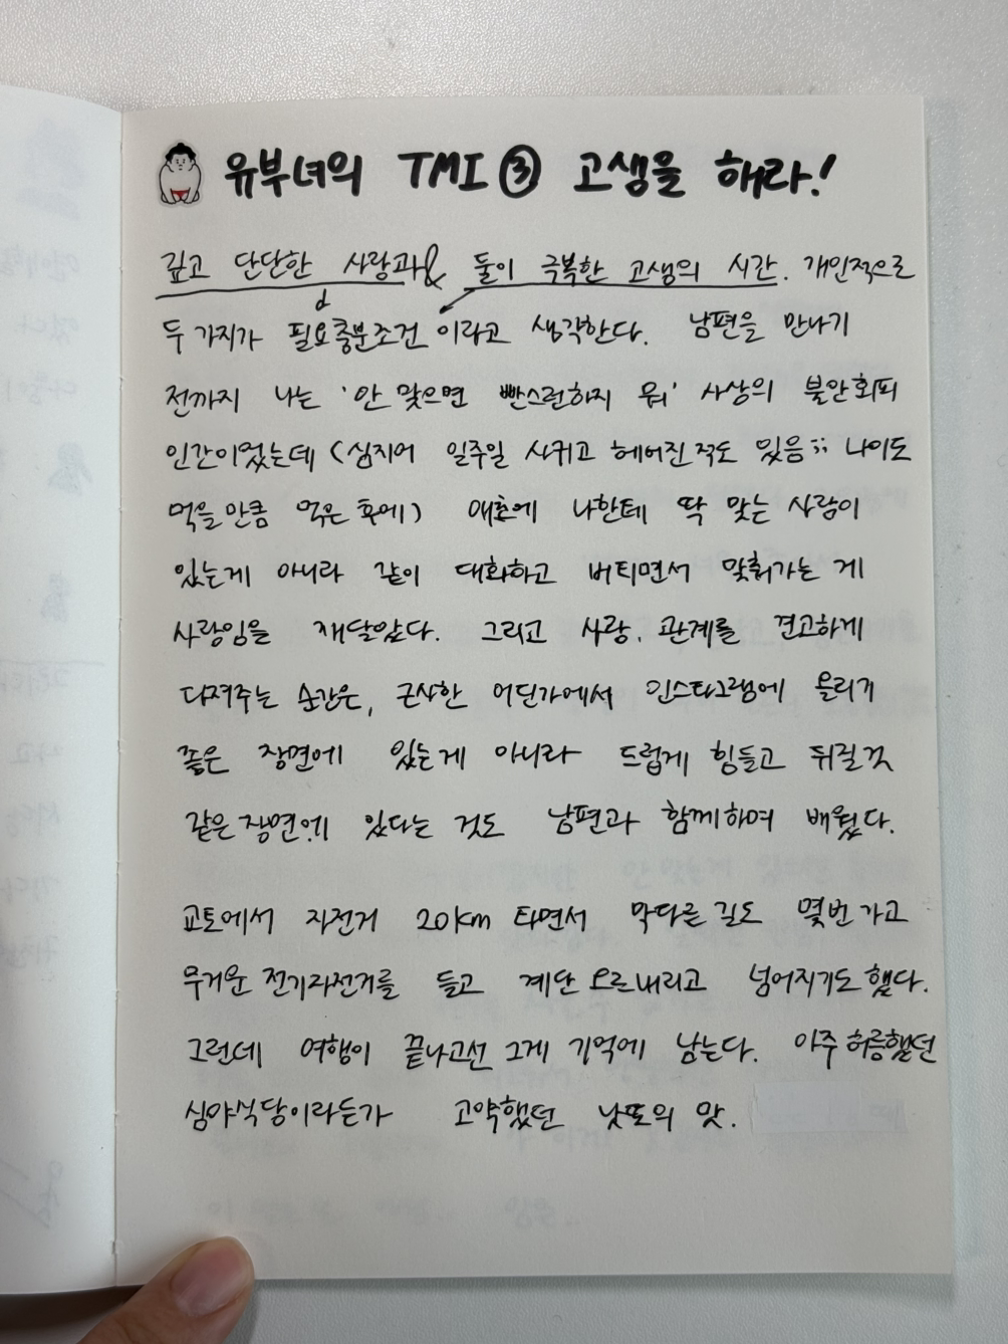 유부녀의 TMI ③ 고생을 해라!
깊고 단단한 사랑과 & 둘이 극복한 고생의 시간. 개인적으로
두 가지가 필요충분조건이라고 생각한다. 남편을 만나기
전까지 나는 '안 맞으면 빤스런하지 뭐' 사상의 불안회피
인간이었는데 (심지어 일주일 사귀고 헤어진 적도 있음;; 나이도
먹을 만큼 먹은 후에) 애초에 나한테 딱 맞는 사람이
있는게 아니라 같이 대화하고 버티면서 맞춰가는 게
사랑임을 깨달았다. 그리고 사랑, 관계를 견고하게
다져주는 순간은, 근사한 어딘가에서 인스타그램에 올리기
좋은 장면에 있는게 아니라 드럽게 힘들고 뒤질것
같은 장면에 있다는 것도 남편과 함께하며 배웠다.
교토에서 자전거 20km 타면서 막다른 길도 몇번 가고
무거운 전기자전거를 들고 계단 오르내리고 넘어지기도 했다.
그런데 여행이 끝나고선 그게 기억에 남는다. 아주 허름했던
심야식당이라든가 고약했던 낫또의 맛.